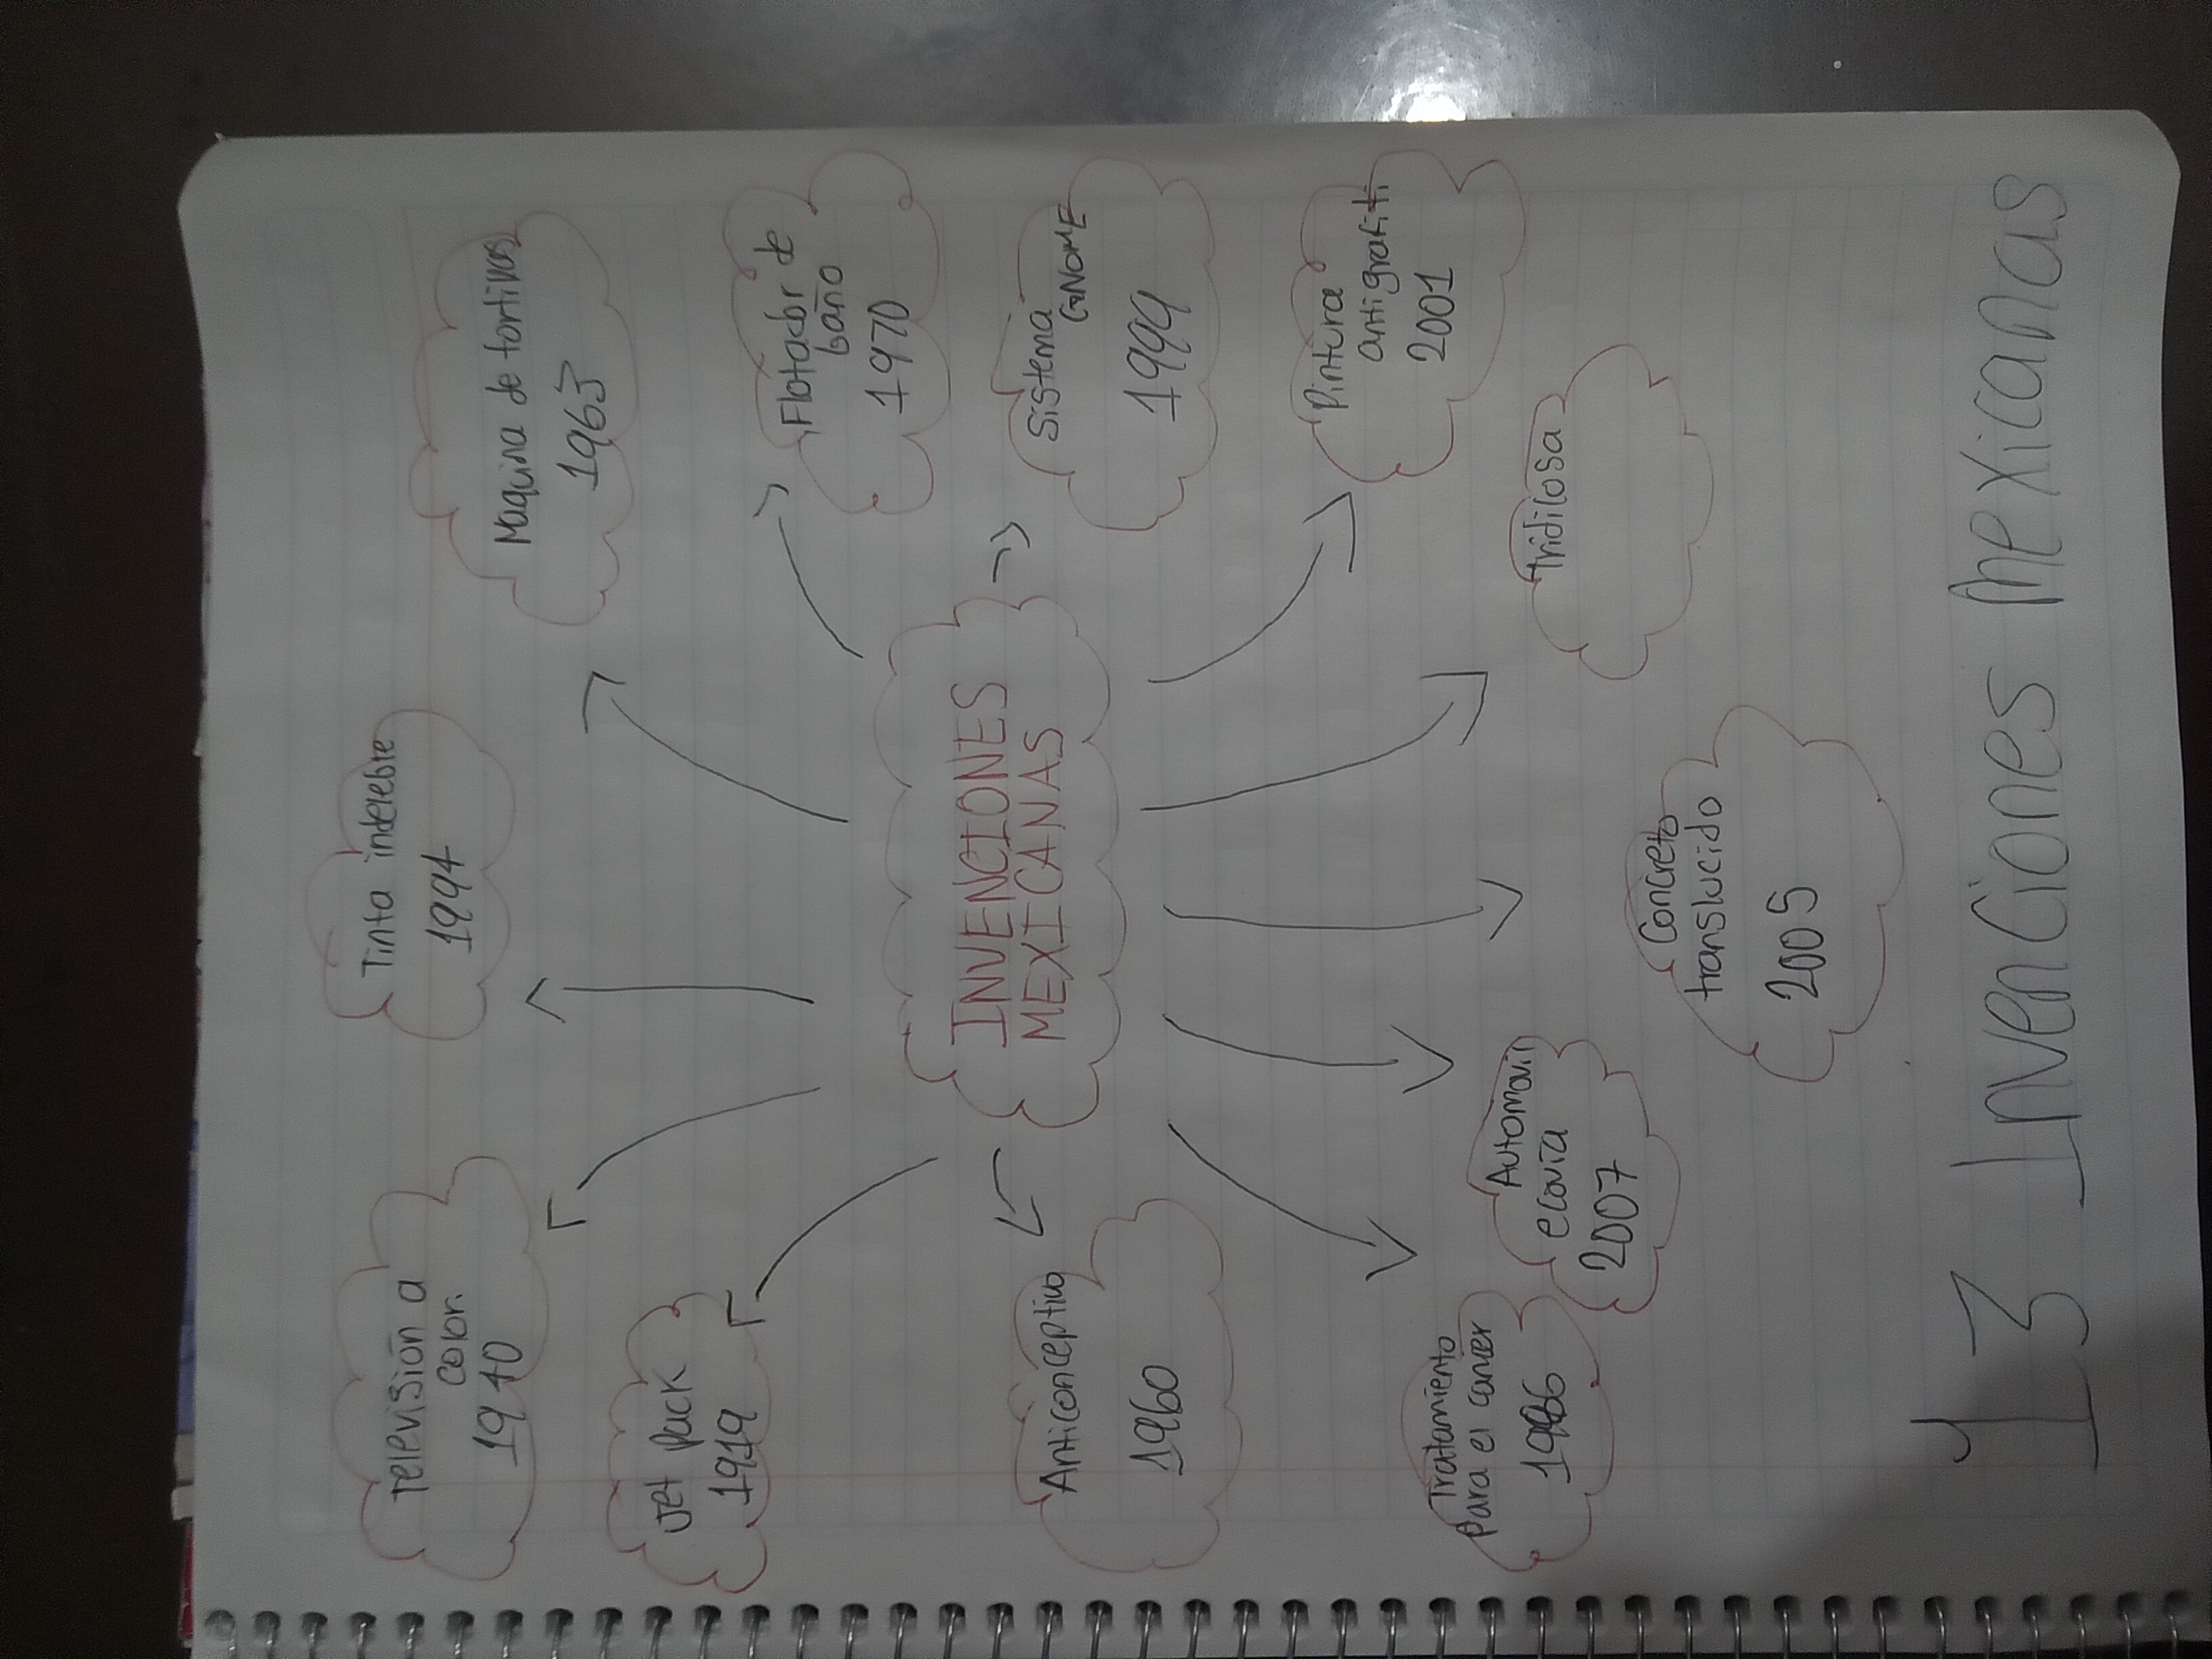 Televisión a
color.
1940
Tinta indelebre
1994
Maquina de tortillas
1963
Jet Pack
1919
Flotador de
baño
1970
INVENCIONES
MEXICANAS
Anticonceptivo
1960
Sistema
GNOME
1999
Tratamiento
Para el cancer
1986
Pintura
antigrafiti
2001
Automovil
ecovía
2007
Tridilosa
Concreto
translucido
2005
13 Invenciones Mexicanas